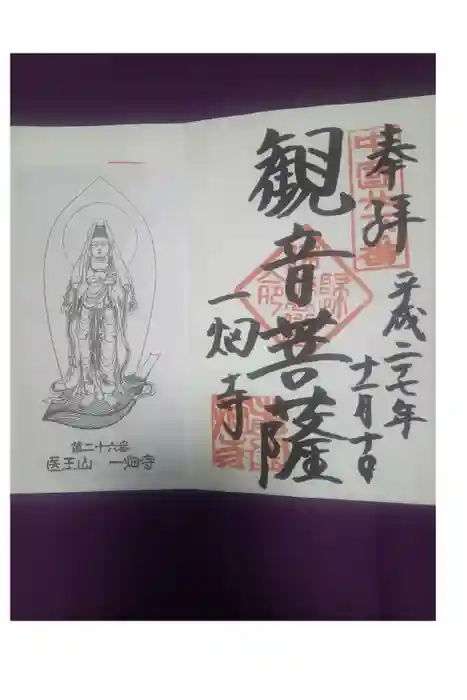 奉拝
平成二七年
観音菩薩
一畑寺
第二十六番
医王山 一畑寺